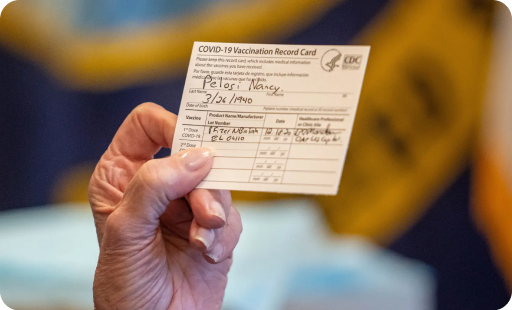 COVID-19 Vaccination Record Card
CDC
Please keep this record card, which includes medical information
about the vaccines you have received.
Por favor, guarde esta tarjeta de registro, que incluye información
médica sobre las vacunas que ha recibido.
Pelosi Nancy
Last Name First Name MI
3/26/1940
Date of birth Patient number
Vaccine Product Name/Manufacturer Date Healthcare Professional
Lot Number or Clinic Site
1st Dose Pfizer NBiotech
COVID-19 EL 0140
2nd Dose